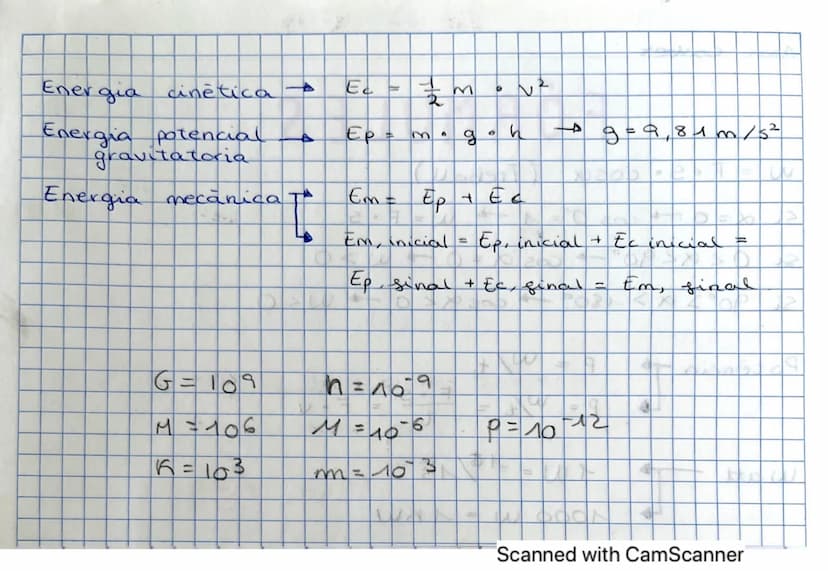 Energia cinètica → Ec = 1/2 m • v²
Energia potencial → Ep = m • g • h → g = 9,81 m/s²
gravitatoria
Energia mecànica → Em = Ep + Ec
→ Em, inicial = Ep, inicial + Ec inicial =
Ep, final + Ec, final = Em, final
G = 10⁹ n = 10⁻⁹
M = 10⁶ µ = 10⁻⁶ p = 10⁻¹²
K = 10³ m = 10⁻³
Scanned with CamScanner